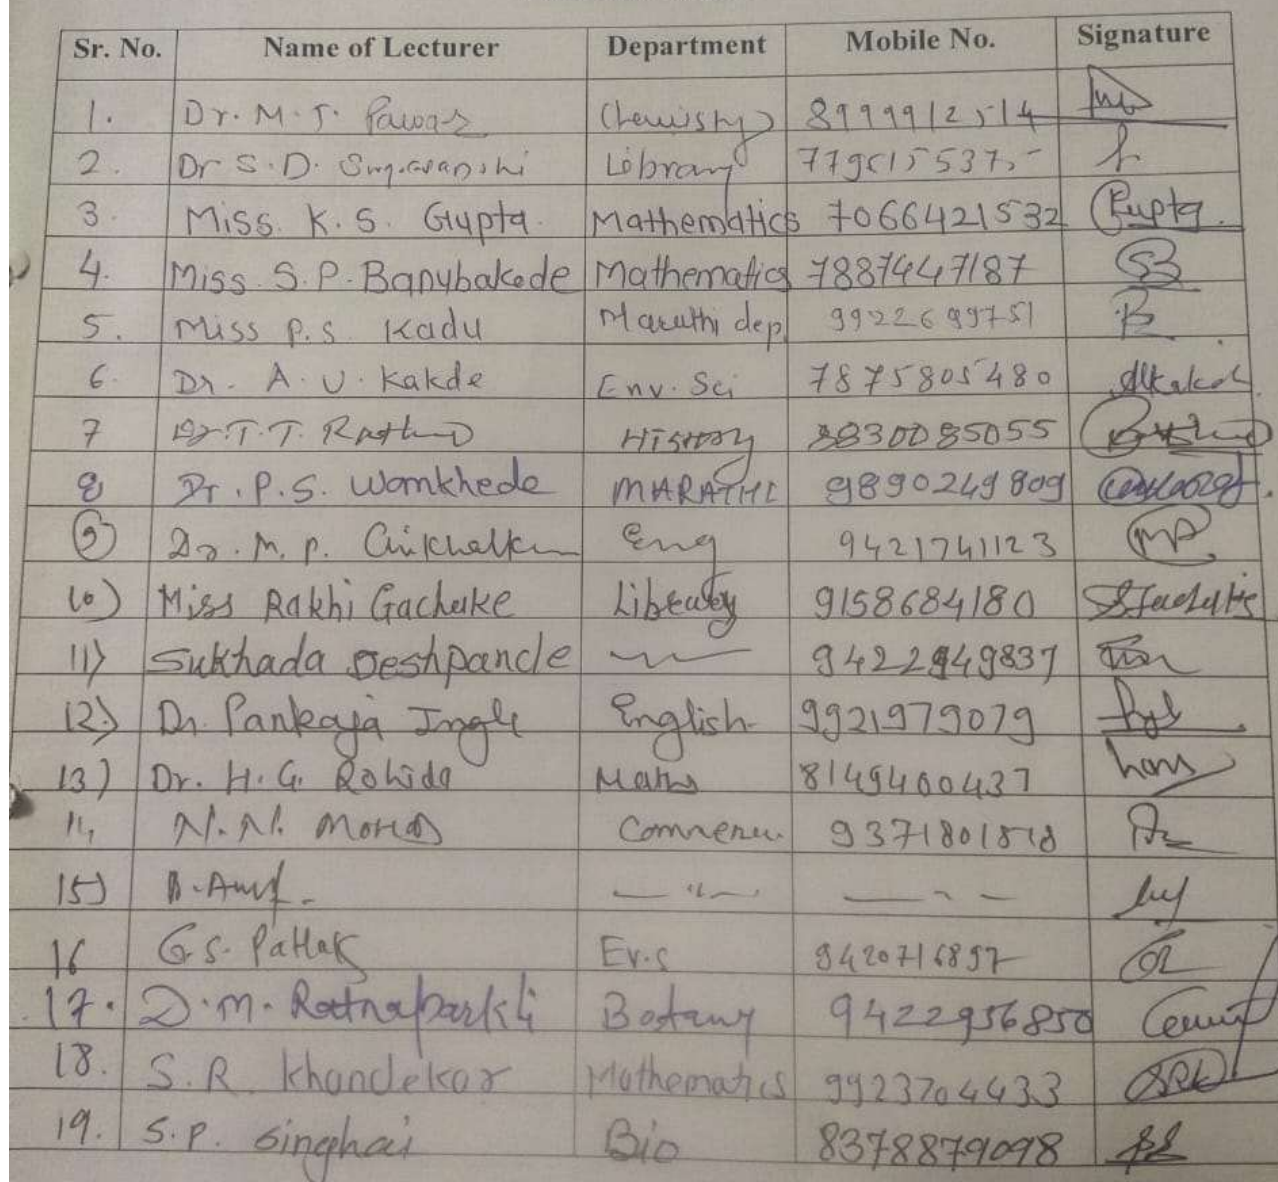 Sr. No. Name of Lecturer Department Mobile No. Signature
1. Dr. M. J. Pawar Chemistry 8999912514
2. Dr S. D. Library
3 Miss. K. S. Gupta. Mathematics 7066421532 Gupta.
4. Miss. S. P. Banubakode Mathematics 7887447187
5. Miss P. S. Kadu Marathi dep. 9922699751
6. Dr. A. U. Kakde Env. Sci 7875805480
7 Dr. T. T. Rathod History 8830085055
8 Dr. P. S. Wankhede MARATHI 9890249809
9 Dr. M. P. Chikhalkar Eng 9421741123
10) Miss Rakhi Gachake Library 9158684180
11) Sukhada Deshpande 9422949837
12) Dr. Pankaja Ingle English 9921979079
13) Dr. H. G. Rohida Maths 8149400437
14, N. N. 
15)
16 G. S. Pathak Ev.s 9420716897
17. D. M. Ratnaparkhi Botany 9422956850
18. S. R. Khandekar Mathematics 9923704433
19. S. P. Singhai Bio 8378879098